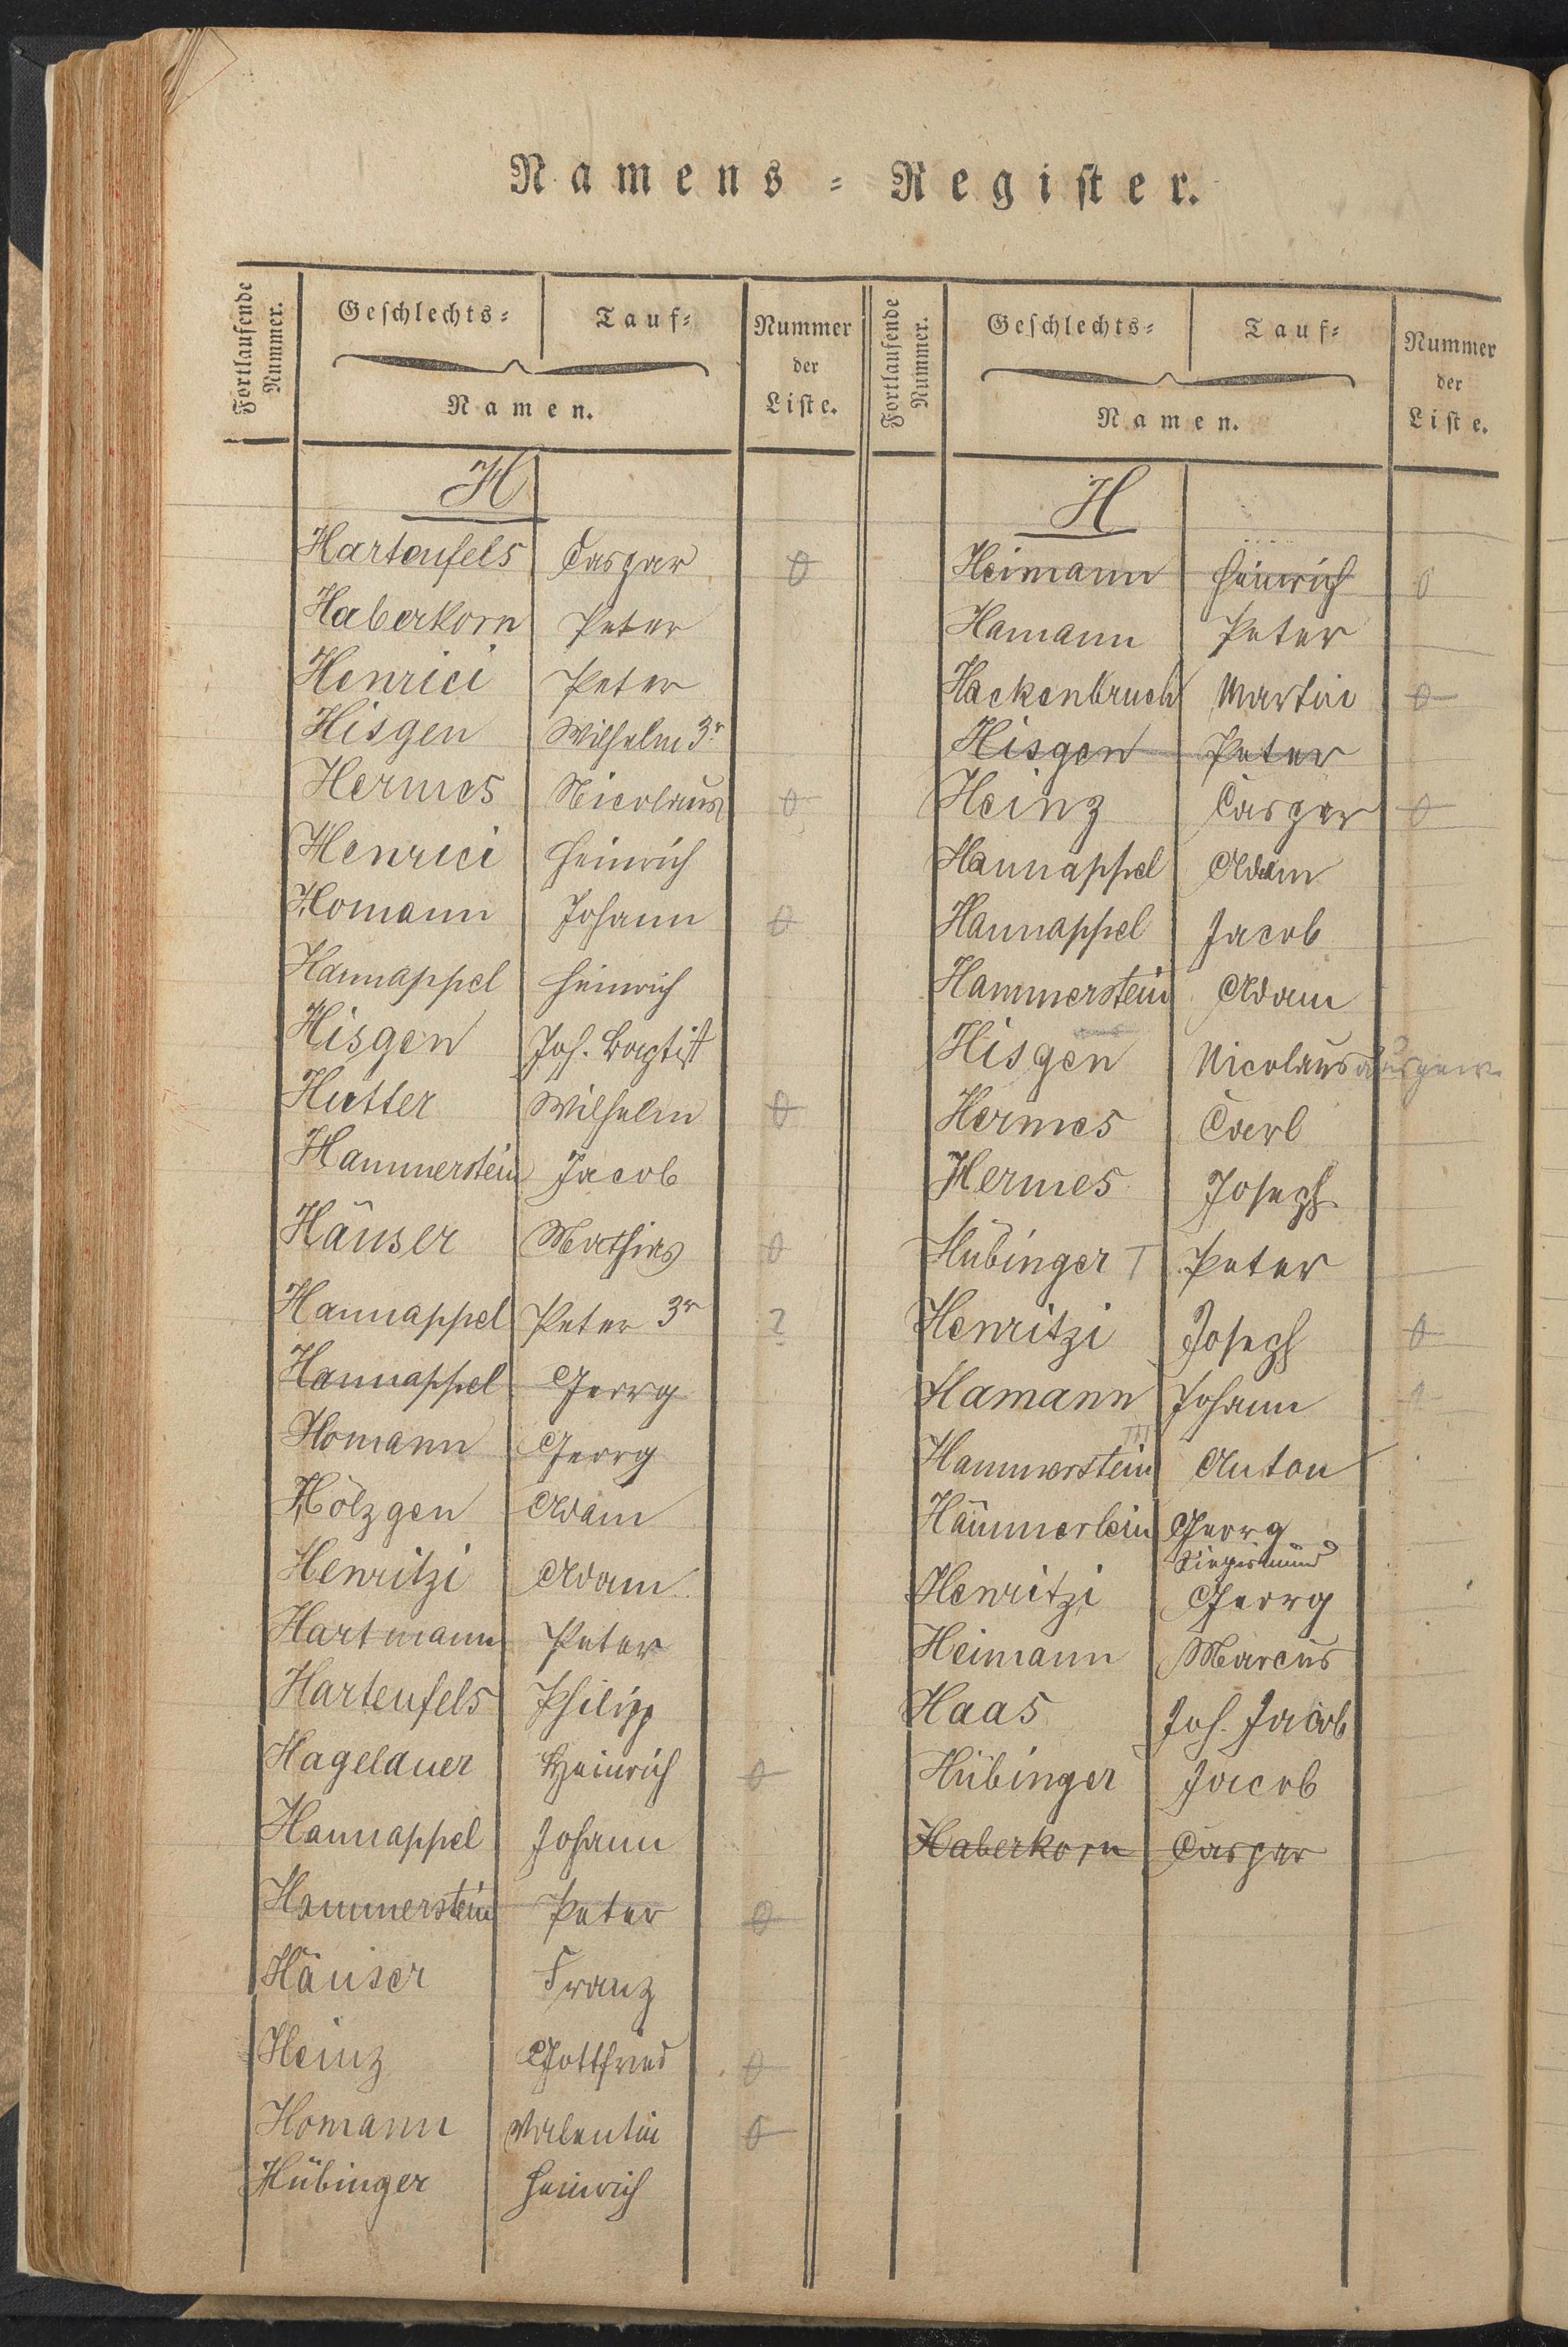 Namens-Register.
Fortlaufende Nummer.
Geschlechts-
Tauf-
Namen.
Nummer der Liste.
H
Hartenfels Caspar 0
Haberkorn Peter
Henrici Peter
Hisgen Wilhelm 3r
Hermes Nicolaus 0
Henrici Heinrich
Homann Johann 0
Hannappel Heinrich
Hisgen Joh. Baptist
Hutter Wilhelm 0
Hammerstein Jacob
Häuser Mathias 0
Hannappel Peter 3r ?
Hannappel Georg
Homann Georg
Hölzgen Adam
Henritzi Adam
Hartmann Peter
Hartenfels Philipp
Hagelauer Heinrich 0
Hannappel Johann
Hammerstein Peter 0
Häuser Franz
Heinz Gottfried 0
Homann Valentin 0
Hübinger Heinrich
Fortlaufende Nummer.
Geschlechts-
Tauf-
Namen.
Nummer der Liste.
H
Heimann Heinrich 0
Hamann Peter
Hackenbruch Martin 0
Hisgen Peter
Heinz Caspar 0
Hannappel Adam
Hannappel Jacob
Hammerstein Adam
Hisgen Nicolaus
Hermes Carl
Hermes Joseph
Hübinger I Peter
Henritzi Joseph 0
Hamann Johann
Hammerstein III Anton
Hämmerlein Georg
Siegismund
Henritzi Georg
Heimann Marcus
Haas Joh. Jacob
Hübinger Jacob
Haberkorn Caspar